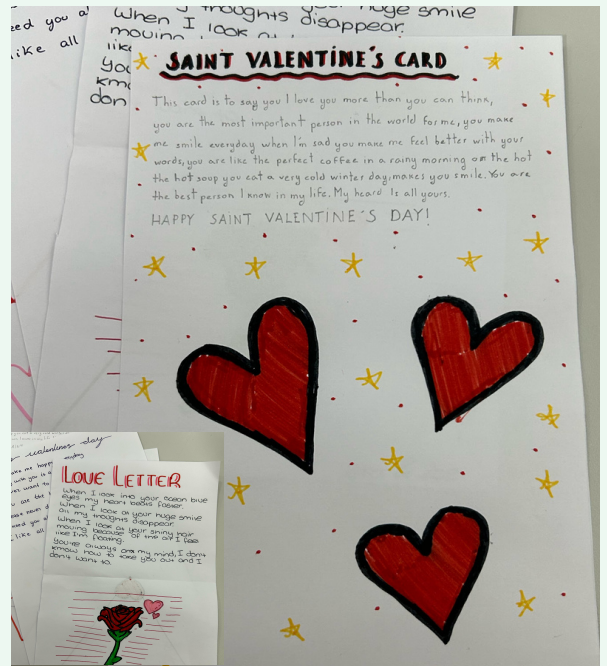 eed you a
ike all
thoughts disappear.
When I look at huge smile
moving
like
you
kno
don
SAINT VALENTINE'S CARD
This card is to say you I love you more than you can think,
you are the most important person in the world for me, you make
me smile everyday when I'm sad you make me feel better with your
words, you are like the perfect coffee in a rainy morning or the hot
the hot soup you eat a very cold winter day, makes you smile. You are
the best person I know in my life. My heard Is all yours.
HAPPY SAINT VALENTINE'S DAY!
day
LOVE LETTER
When I look into your ocean blue
eyes my heart beats faster.
When I look at your huge smile
all my thoughts disappear.
When I look at your shiny hair
moving because of the air I feel
like I'm floating.
You're always on my mind, I don't
know how to take you out and I
don't want to.